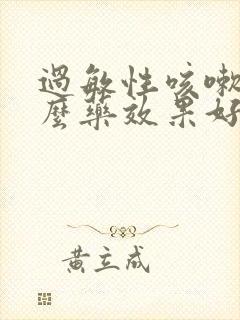 过敏性咳嗽
麼藥效果好
黃立成